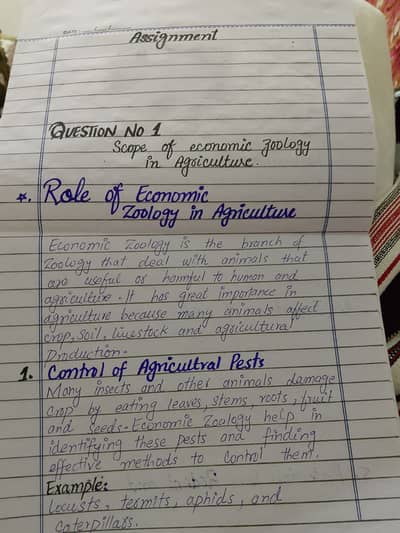 Assignment
QUESTION NO 1
Scope of economic zoology
in Agriculture.
*. Role of Economic
Zoology in Agriculture
Economic Zoology is the branch of
Zoology that deal with animals that
are useful or harmful to human and
agriculture. It has great importance in
agriculture because many animals affect
crop, soil, livestock and agricultural
Production.
1. Control of Agricultral Pests
Many insects and other animals damage
crop by eating leaves, stems, roots, fruit
and seeds. Economic Zoology help in
identifying these pests and finding
effective methods to control them.
Example:
Locusts, termits, aphids, and
caterpillars.